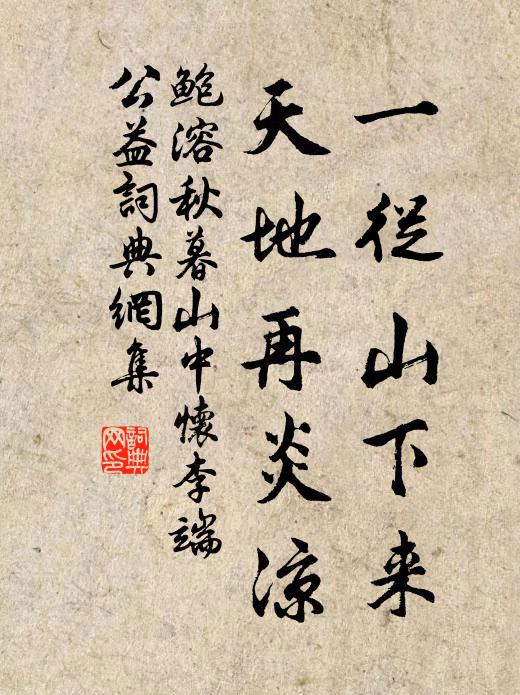 一從山下来
天地再炎涼
鲍溶秋暮山中懷李端
公益詞典網集
詞典网印